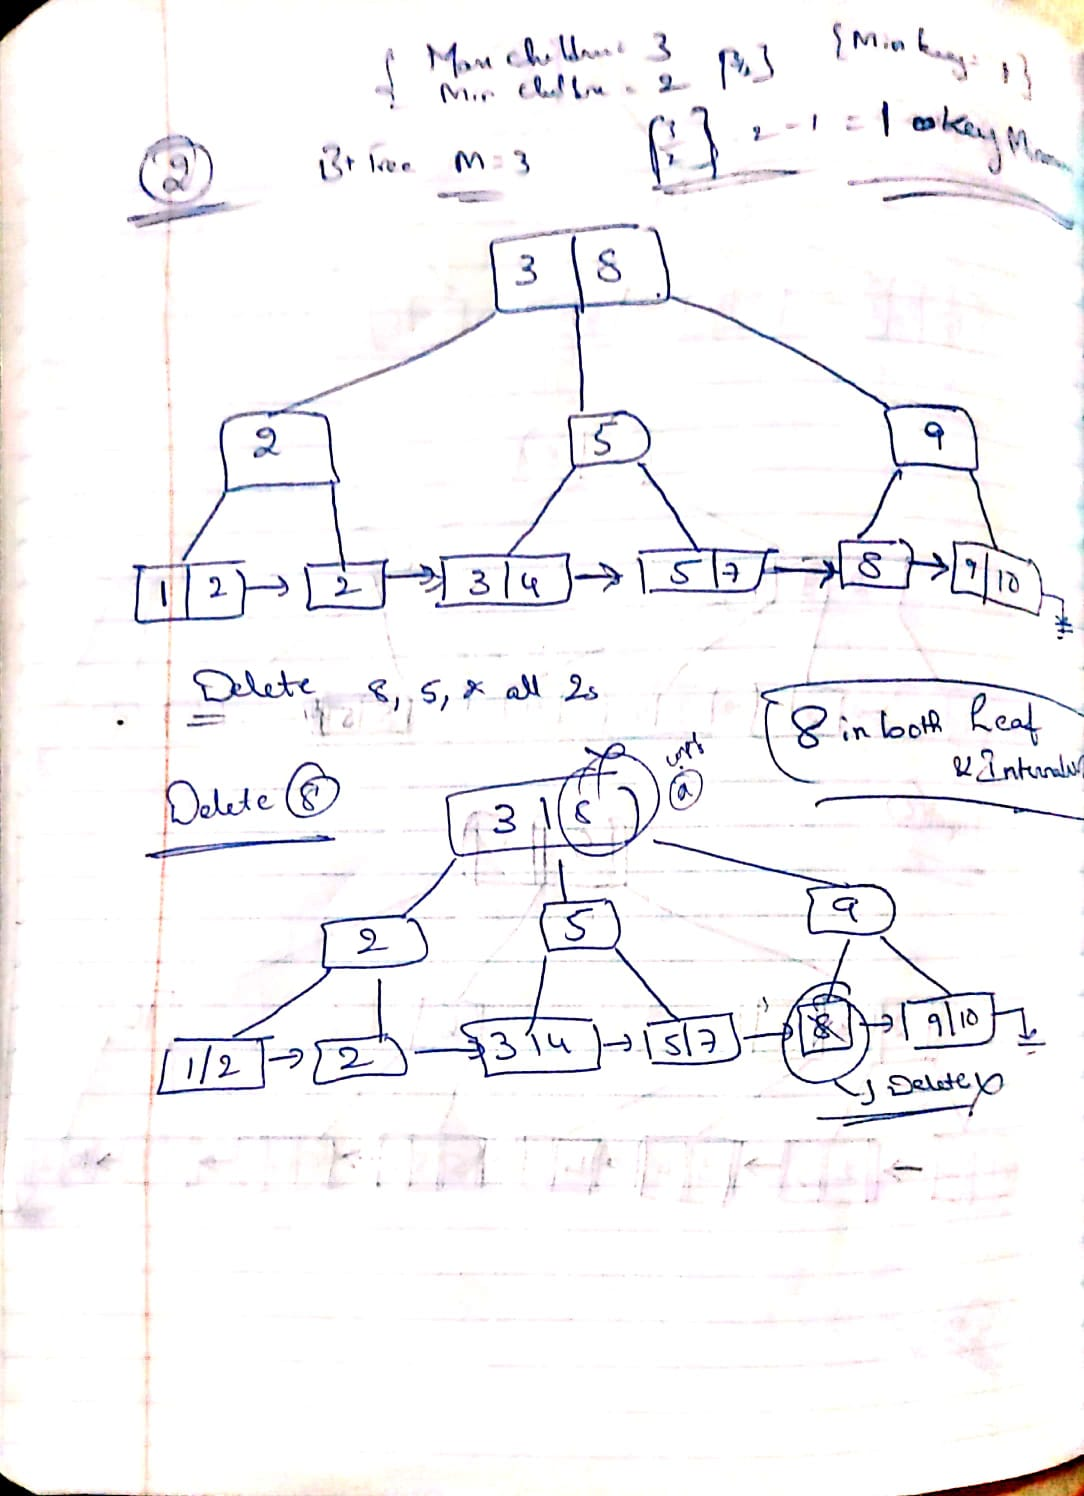 { Max children: 3 {Min key: 1}
Min children = 2 [3/2]
② B+ Tree M=3 [3/2] 2-1 = 1 key
3 | 8
2 5 9
1 | 2 → 2 → 3 | 4 → 5 | 7 → 8 → 9 | 10
Delete 8, 5, & all 2s
8 in both Leaf
& Internal
Delete ⑧
3 | 8 ⓐ
2 5 9
1 | 2 → 2 → 3 | 4 → 5 | 7 → 8 → 9 | 10
Delete